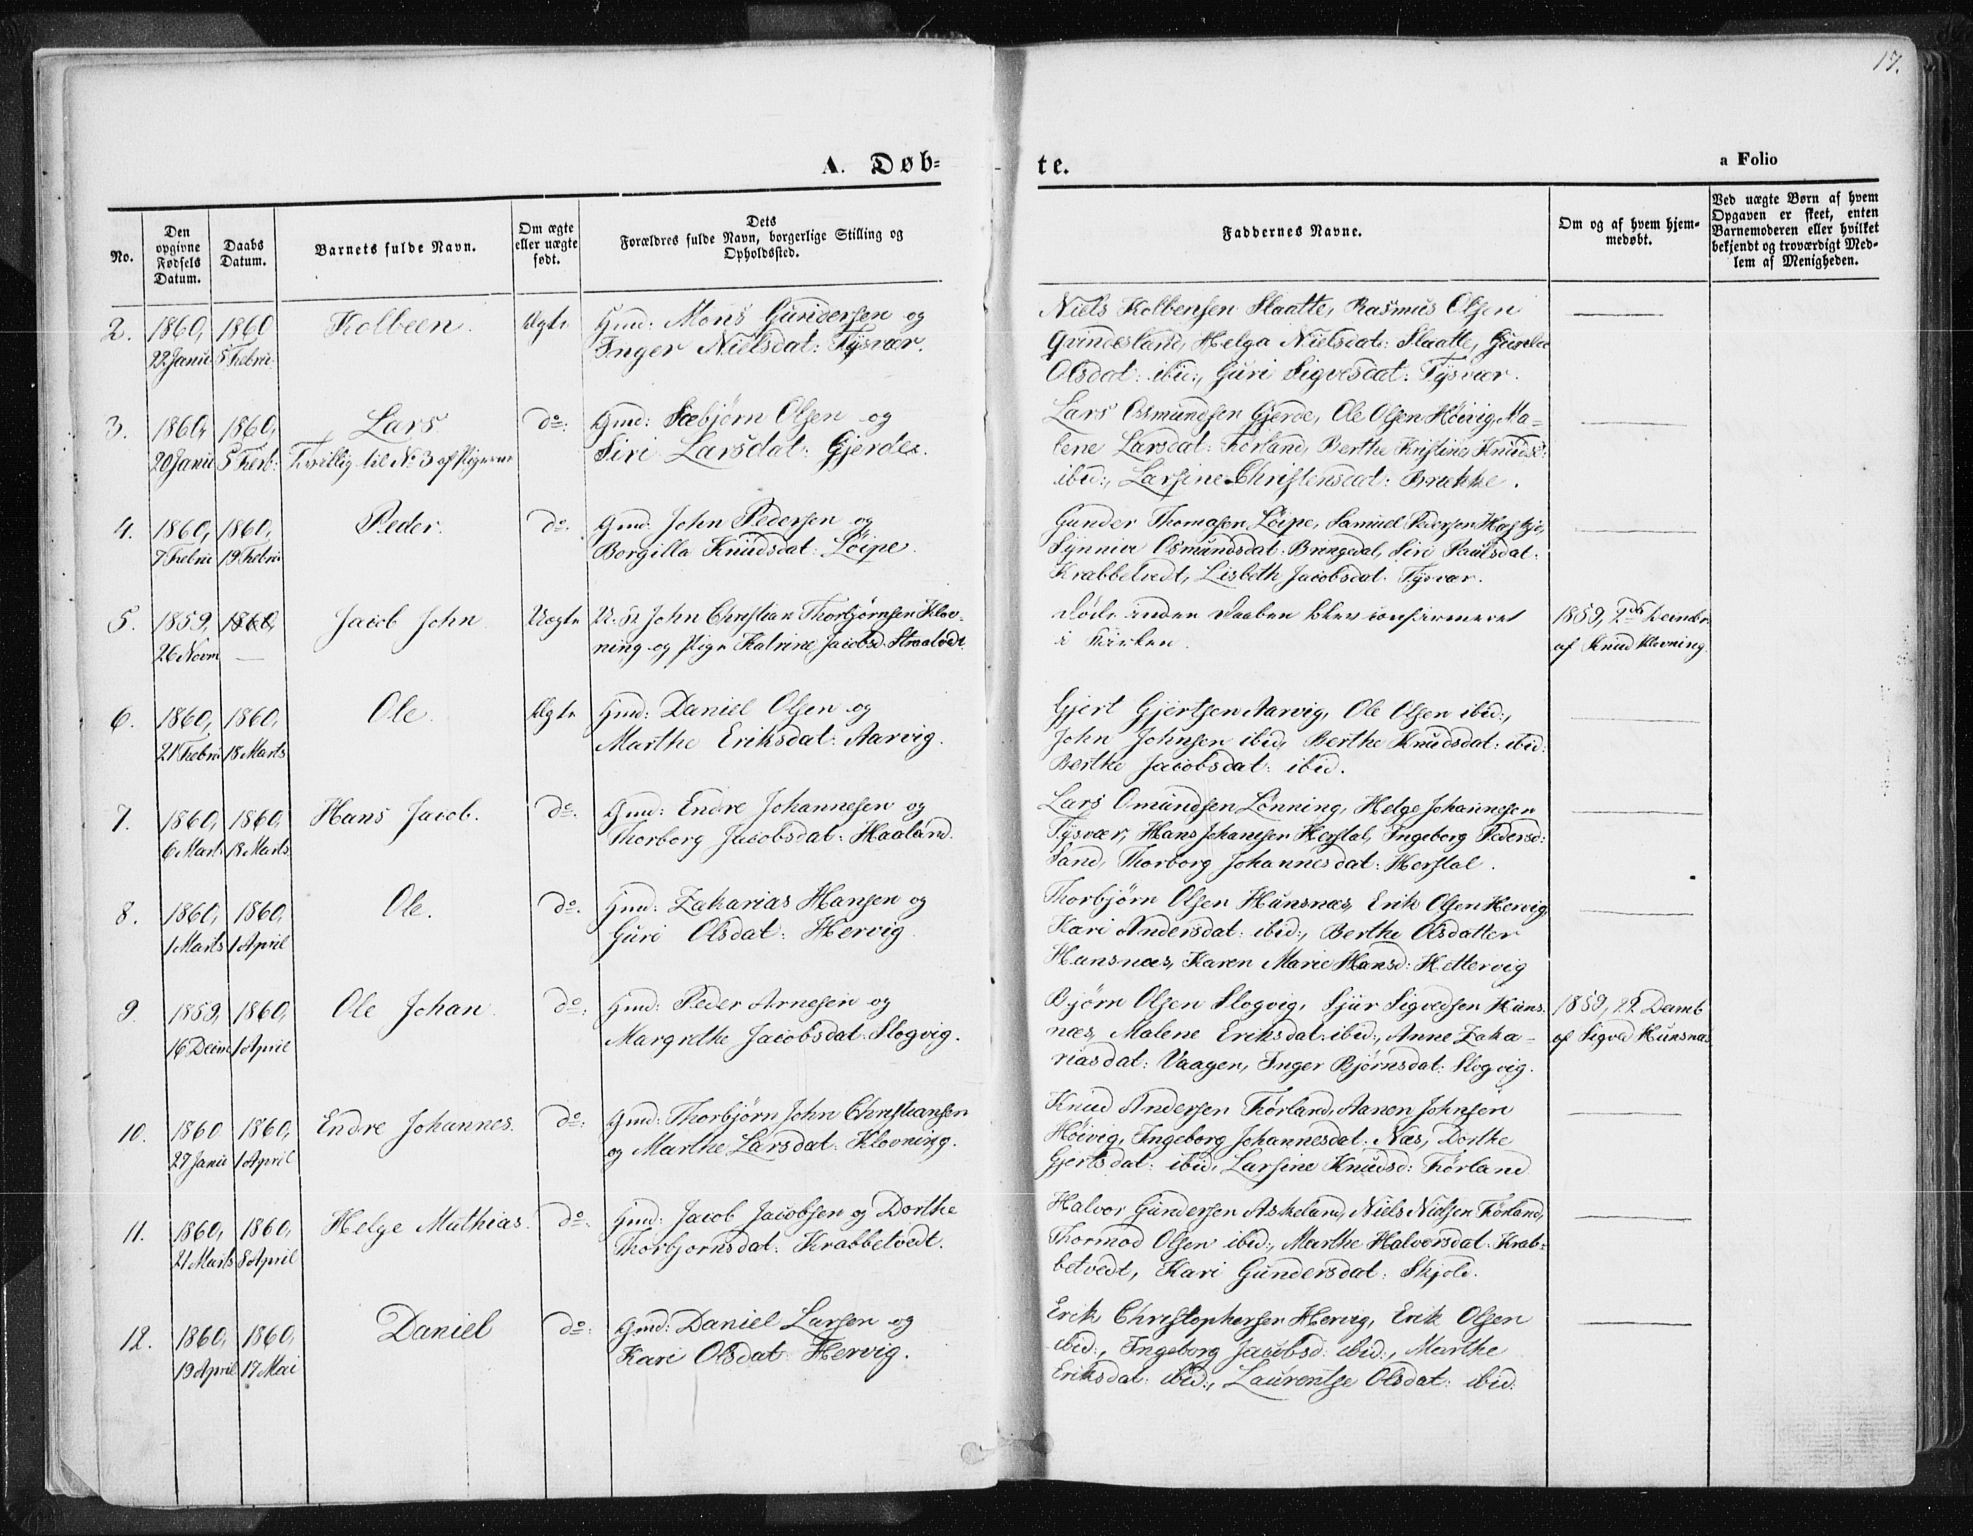 17.
A. Døb-
te.
a Folio
No.
Den
opgivne
Fødsels
Datum.
Daabs
Datum.
Barnets fulde Navn.
Om ægte
eller uægte
født.
Dets
Forældres fulde Navn, borgerlige Stilling og
Opholdssted.
Faddernes Navne.
Om og af hvem hjem-
medøbt.
Ved uægte Børn af hvem
Opgaven er skeet, enten
Barnemoderen eller hvilket
bekjendt og troværdigt Med-
lem af Menigheden.
2. 1860, 1860 Kolbeen. Ægte Gmd: Mons Gundersen og
22 Janu 5 Febru Inger Nielsdat: Tysvær.
Niels Kolbensen Slaatte, Rasmus Olsen
Grindesland, Helga Nielsdat: Slaatte, Gunla
Olsdat: ibid:, Guri Sigvesdat: Tysvær.
3. 1860, 1860, Lars do: Gmd: Sæbjørn Olsen og
20 Janu 5 Feb: Tvillig til No 3 af Pigerne Siri Larsdat: Gjerde.
Lars Osmundsen Gjerde, Ole Olsen Høivig, Ma-
lene Larsdat: Førland, Berthe Kristine Knudsd:
ibid:, Larsine Christensdat: Brække.
4. 1860, 1860, Peder. do. Gmd. John Pedersen og
7 Febru 19 Febru Borgilla Knudsdat: Løipe.
Gunder Thomasen Løipe, Samuel Pedersen
Synnive Osmundsdat: Bringedal, Siri Paulsdat:
Krabbetvedt, Lisbeth Jacobsdat: Tysvær.
5. 1859, 1860, Jacob John Uægte U. K. John Christian Thorbjørnsen Klov-
26 Novm — ning og Pige Katrine Jacobsd:
Døde inden Daaben blev confirmeret
i Kirken.
1859, 2den Decmbr
af Knud Klovning.
6. 1860, 1860, Ole. Ægte Gmd: Daniel Olsen og
21 Febru 18 Marts Marthe Eriksdat: Aarvig.
Gjert Gjertsen Aarvig, Ole Olsen ibid:,
John Johnsen ibid, Berthe Knudsdat: ibid:
Berthe Jacobsdat: ibid.
7. 1860, 1860, Hans Jacob. do. Gmd: Endre Johannesen og
6 Marts 18 Marts Thorborg Jacobsdat: Haaland.
Lars Omundsen Lønning, Helge Johannesen
Tysvær, Hans Johannesen Horstal, Ingeborg Pedersd:
Sand, Thorborg Johannesdat: Horstal.
8. 1860, 1860, Ole. do. Gmd: Zakarias Hansen og
1 Marts 1 April Guri Olsdat: Hervig.
Thorbjørn Olsen Hunsnæs, Erik Olsen Hervig,
Kari Andersdat: ibid:, Berthe Olsdatter
Hunsnæs, Karen Marie Hansd: Hettervig
9. 1859, 1860, Ole Johan. do: Gmd: Peder Arnesen og
16 Decm 1 April Margrethe Jacobsdat: Slogvig.
Bjørn Olsen Slogvig, Sjur Sigvedsen Huns-
næs, Malene Eriksdat: ibid:, Anne Zaka-
riasdat: Vaagen, Inger Bjørnsdat: Slogvig.
1859, 22 Decmb
af Sigvd Hunsnæs
10. 1860 1860, Endre Johannes. do: Gmd: Thorbjørn John Christiansen
27 Janu 1 April og Marthe Larsdat: Klovning.
Knud Andersen Førland, Aanen Johnsen
Høivig, Ingeborg Johannesdat: Næs, Dorthe
Gjertsdat: ibid, Larsine Knudsd: Førland
11. 1860, 1860, Helge Mathias. do: Gmd: Jacob Jacobsen og Dorthe
21 Marts 8 April Thorbjørnsdat: Krabbetvedt.
Halvor Gundersen Askeland, Niels Nielsen Førland,
Thormod Olsen ibid:, Marthe Halvorsdat: Krab-
betvedt, Kari Gundersdat: Skjold.
12. 1860, 1860, Daniel do: Gmd: Daniel Larsen og
19 April 17 Mai Kari Olsdat: Hervig.
Erik Christophersen Hervig, Erik Olsen
ibid:, Ingeborg Jacobsd: ibid:, Marthe
Eriksdat: ibid:, Laurentse Olsdat: ibid: